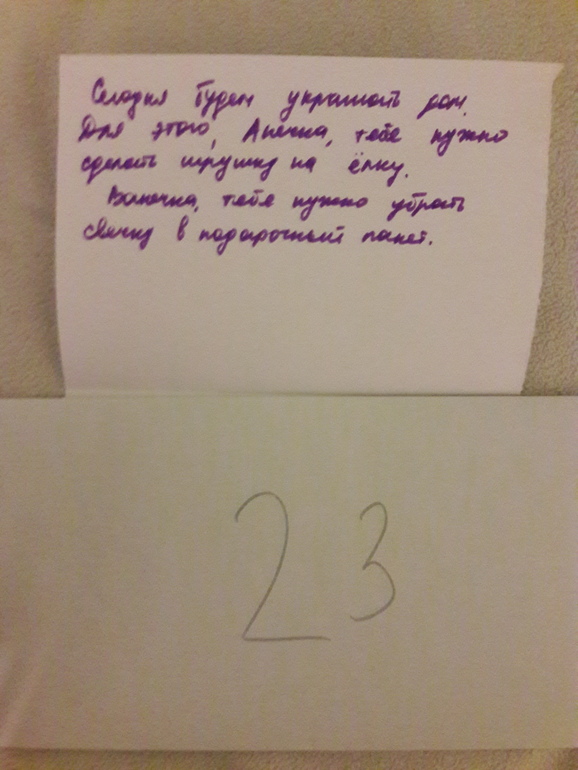 Сегодня будем украшать дом.
Для этого, Анечка, тебе нужно
сделать игрушку на ёлку.
Ванечка, тебе нужно убрать
свечку в подарочный пакет.
23